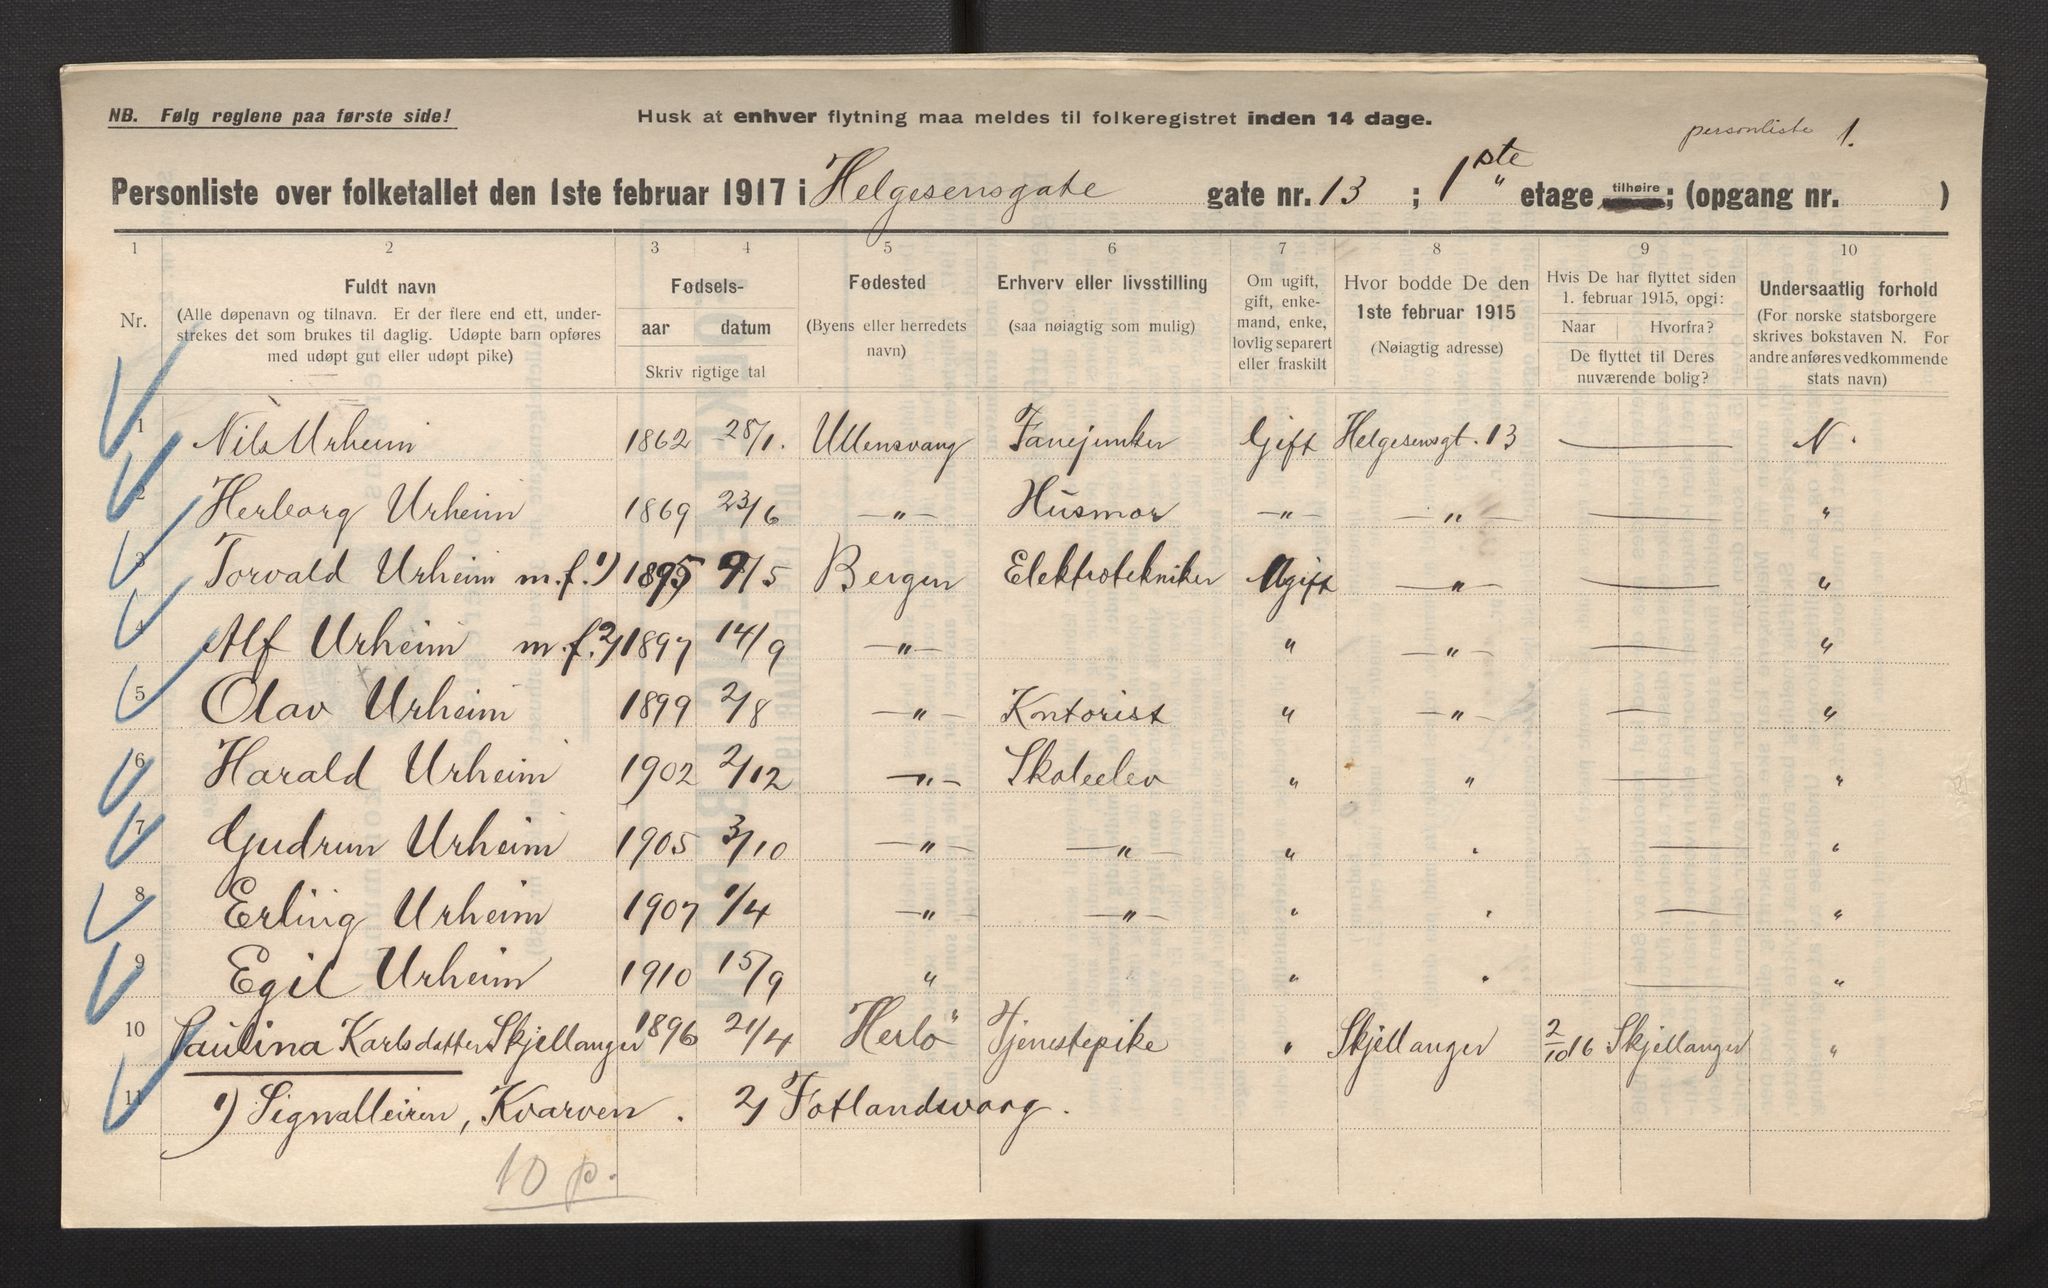 NB. Følg reglene paa første side!
Husk at enhver flytning maa meldes til folkeregistret inden 14 dage.
personliste 1.
Personliste over folketallet den 1ste februar 1917 i Helgesensgate gate nr. 13 ; 1ste " etage tilhøire; (opgang nr. )
1 2 3 4 5 6 7 8 9 10
Nr.
Fuldt navn
(Alle døpenavn og tilnavn. Er der flere end ett, under-
strekes det som brukes til daglig. Udøpte barn opføres
med udøpt gut eller udøpt pike)
Fødsels-
aar datum
Skriv rigtige tal
Fødested
(Byens eller herredets
navn)
Erhverv eller livsstilling
(saa nøiagtig som mulig)
Om ugift,
gift, enke-
mand, enke,
lovlig separert
eller fraskilt
Hvor bodde De den
1ste februar 1915
(Nøiagtig adresse)
Hvis De har flyttet siden
1. februar 1915, opgi:
Naar Hvorfra?
De flyttet til Deres
nuværende bolig?
Undersaatlig forhold
(For norske statsborgere
skrives bokstaven N. For
andre anføres vedkommende
stats navn)
1 Nils Urheim 1862 28/1. Ullensvang Fanejunker Gift Helgesensgt. 13 — — N.
2 Herborg Urheim 1869 23/6 —"— Husmor —"— —"— — "
3 Torvald Urheim m.f. 1) 1895 9/5 Bergen Elektrotekniker Ugift —"— — "
4 Alf Urheim m.f. 2) 1897 14/9 —"— " —"— — "
5 Olav Urheim 1899 2/8 —"— Kontorist " —"— — "
6 Harald Urheim 1902 2/12 —"— Skoleelev " " — "
7 Gudrun Urheim 1905 3/10 —"— —"— " " — "
8 Erling Urheim 1907 1/4 —"— —"— " " — "
9 Egil Urheim 1910 15/9 " " " — "
10 Paulina Karlsdatter Skjellanger 1896 21/4 Herlö Tjenestepike " Skjellanger 2/10 16 Skjellanger "
11 1) Signalleiren, Kvarven. 2) Fotlandsvaag.
10 p.